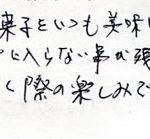 菓子をいつも美味し
に入らない事が残
く際の楽しみで